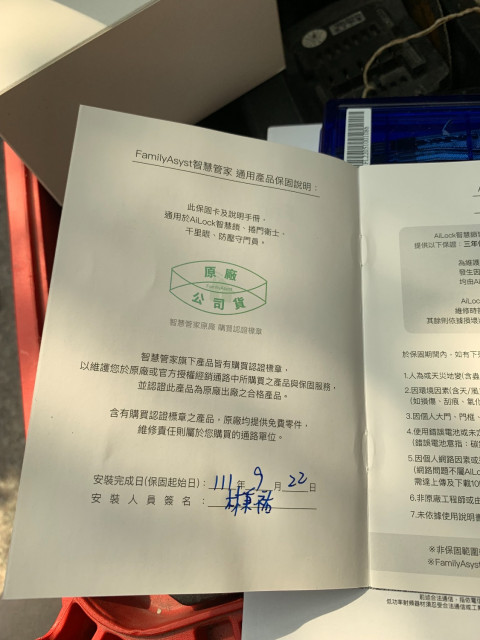 FamilyAsyst智慧管家 通用產品保固說明：
此保固卡及說明手冊，
適用於AiLock智慧鎖、捲門衛士、
千里眼、防壓守門員。
原廠
FamilyAsyst
公司貨
智慧管家原廠 購買認證標章
智慧管家旗下產品皆有購買認證標章，
以維護您於原廠或官方授權經銷通路中所購買之產品與保固服務，
並認證此產品為原廠出廠之合格產品。
含有購買認證標章之產品，原廠均提供免費零件，
維修責任則屬於您購買的通路單位。
安裝完成日(保固起始日)：111年 9 月 22 日
安裝人員簽名：
AiLock智慧鎖
提供以下保證：三年保
為維護
發生因
均由Ai
AiLo
維修時
其餘則依據損壞
於保固期間內，如有下列
1.人為或天災地變(含蟲
2.因環境因素(含天/風
(如損傷、刮痕、氧化
3.因個人大門、門框、
4.使用錯誤電池或未定
(錯誤電池意指：碳
5.因個人網路因素或
(網路問題不屬AiLo
需達上傳及下載10
6.非原廠工程師或由
7.未依據使用說明書
※非保固範圍
※FamilyAsyst